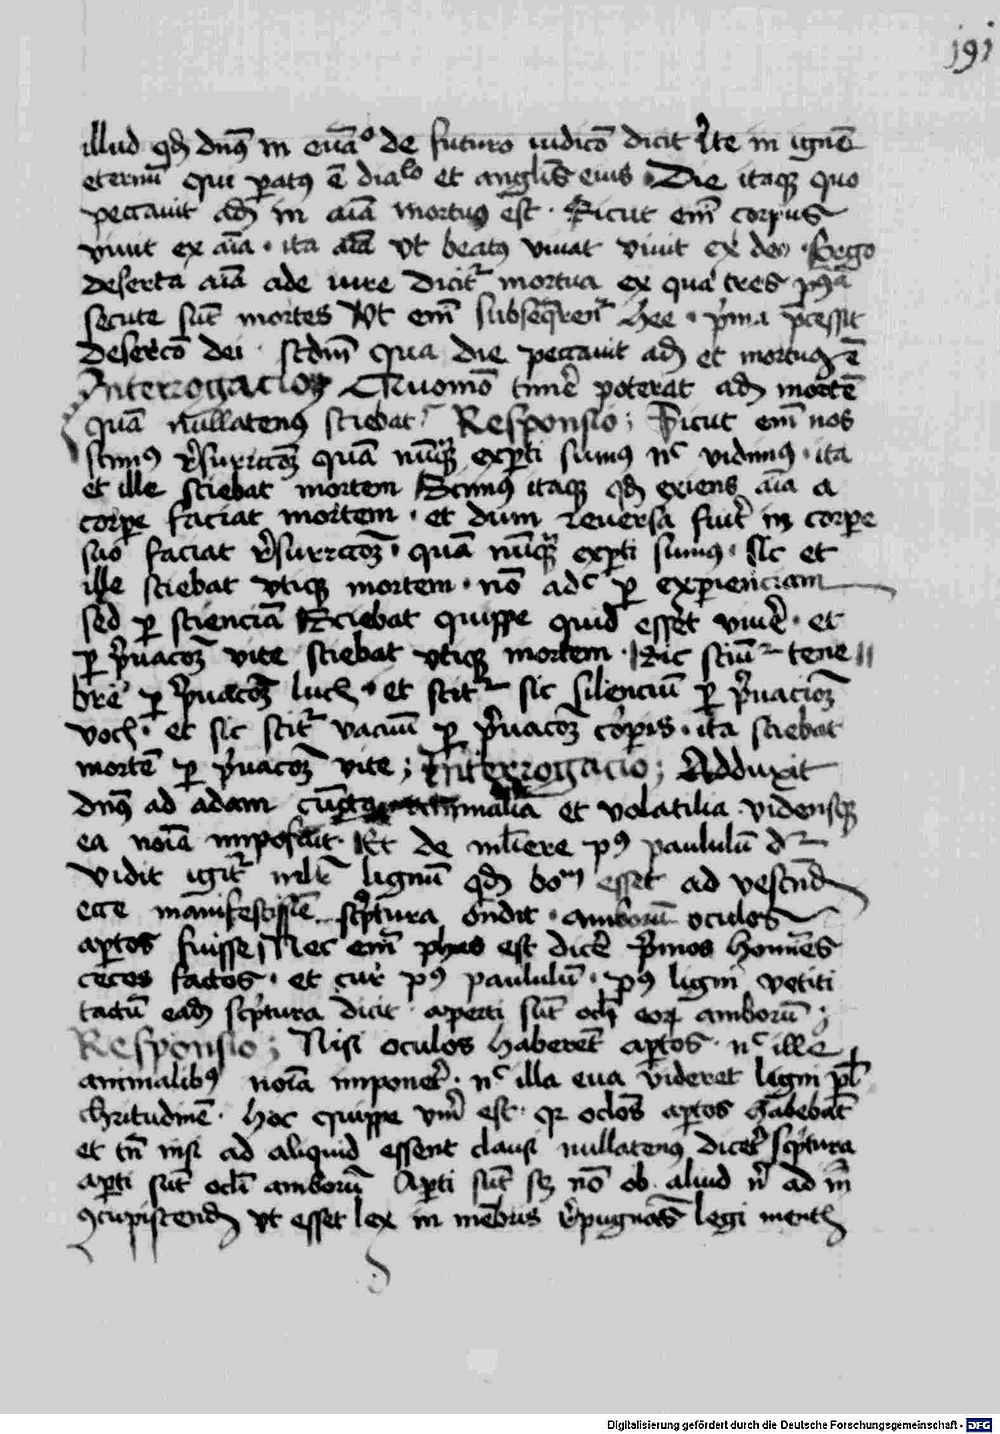 191
illud qđ dnꝰ in euāᵒ de futuro iudicō dicit Ite in ignē
eternū qui ꝑatꝰ ē diaᵇˡᵒ et anglis̄ eius. Die itaqꝫ quo
peccauit adā in aīa mortuꝰ est. Sicut em̄ corpus
viuit ex aīa. ita aīa vt beatꝰ viuat viuit ex deo. Ergo
deserta aīa ade iure dicit᷑ mortua ex qua tres
secute sūt mortes Vt em̄ hee. pͥma p̄cessit
desercō dei. qua die peccauit adā et mortuꝰ ē
Interrogacio Quomō timē poterat adā mortē
quā nullatenꝰ sciebat? Responsio; Sicut em̄ nos
scimꝰ quā nūqꝫ exꝑti sumꝰ nᶜ vidimꝰ. ita
et ille sciebat mortem Scimꝰ itaqꝫ qđ exiens aīa a
corpe faciat mortem. et dum reuersa fuit᷑ in corpe
suo faciat quā nūqꝫ exꝑti sumꝰ. Sic et
ille sciebat vtiqꝫ mortem. nō adᶜ ꝑ expienciam
sed ꝑ scienciā Sciebat quippe quid esset viuē. et
ꝑ pͥuacōꝫ vite sciebat vtiqꝫ mortem. Sic tene
bre ꝑ pͥuacōꝫ lucis. et scit᷑ sic silenciū ꝑ pͥuacioꝫ
vocis. et sic scit᷑ vacuū ꝑ pͥuacōꝫ corꝑis. ita sciebat
mortē ꝑ pͥuacōꝫ vite; Interrogacio; Adduxit
dnꝰ ad adam animalia et volatilia vidensqꝫ
ea noīa imposuit. Et de mlīere pꝰ paululū dʳ
Vidit igit᷑ mlʳ lignū qđ boᵐ esset ad vescend
ecce manifestissīe scͥptura ōndit. amborum oculos
aꝑtos fuisse Nec em̄ phas est dicē pͥmos homīes
cecos factos. et cur pꝰ paululū. pꝰ ligni vetiti
tactū eadē scͥptura dicit. aꝑti sūt ocłi eoꝝ amborū;
Responsio; Nisi oculos haberēt aꝑtos. nᶜ ille
animalibꝰ noīa imponeret. nᶜ illa eua videret ligni pul
chritudinē. hoc quippe vnū est. qꝛ oclōs aꝑtos habebāt
et tn̄ nisi ad aliquid essent clausi nullatenꝰ dicet᷑ scͥptura
aꝑti sūt ocłi amborū Aꝑti sūt sꝫ nō ob aliud nͥ ad
ꝯcupiscend vt esset lex in mēbris repugnās legi mentis
Digitalisierung gefördert durch die Deutsche Forschungsgemeinschaft - DFG